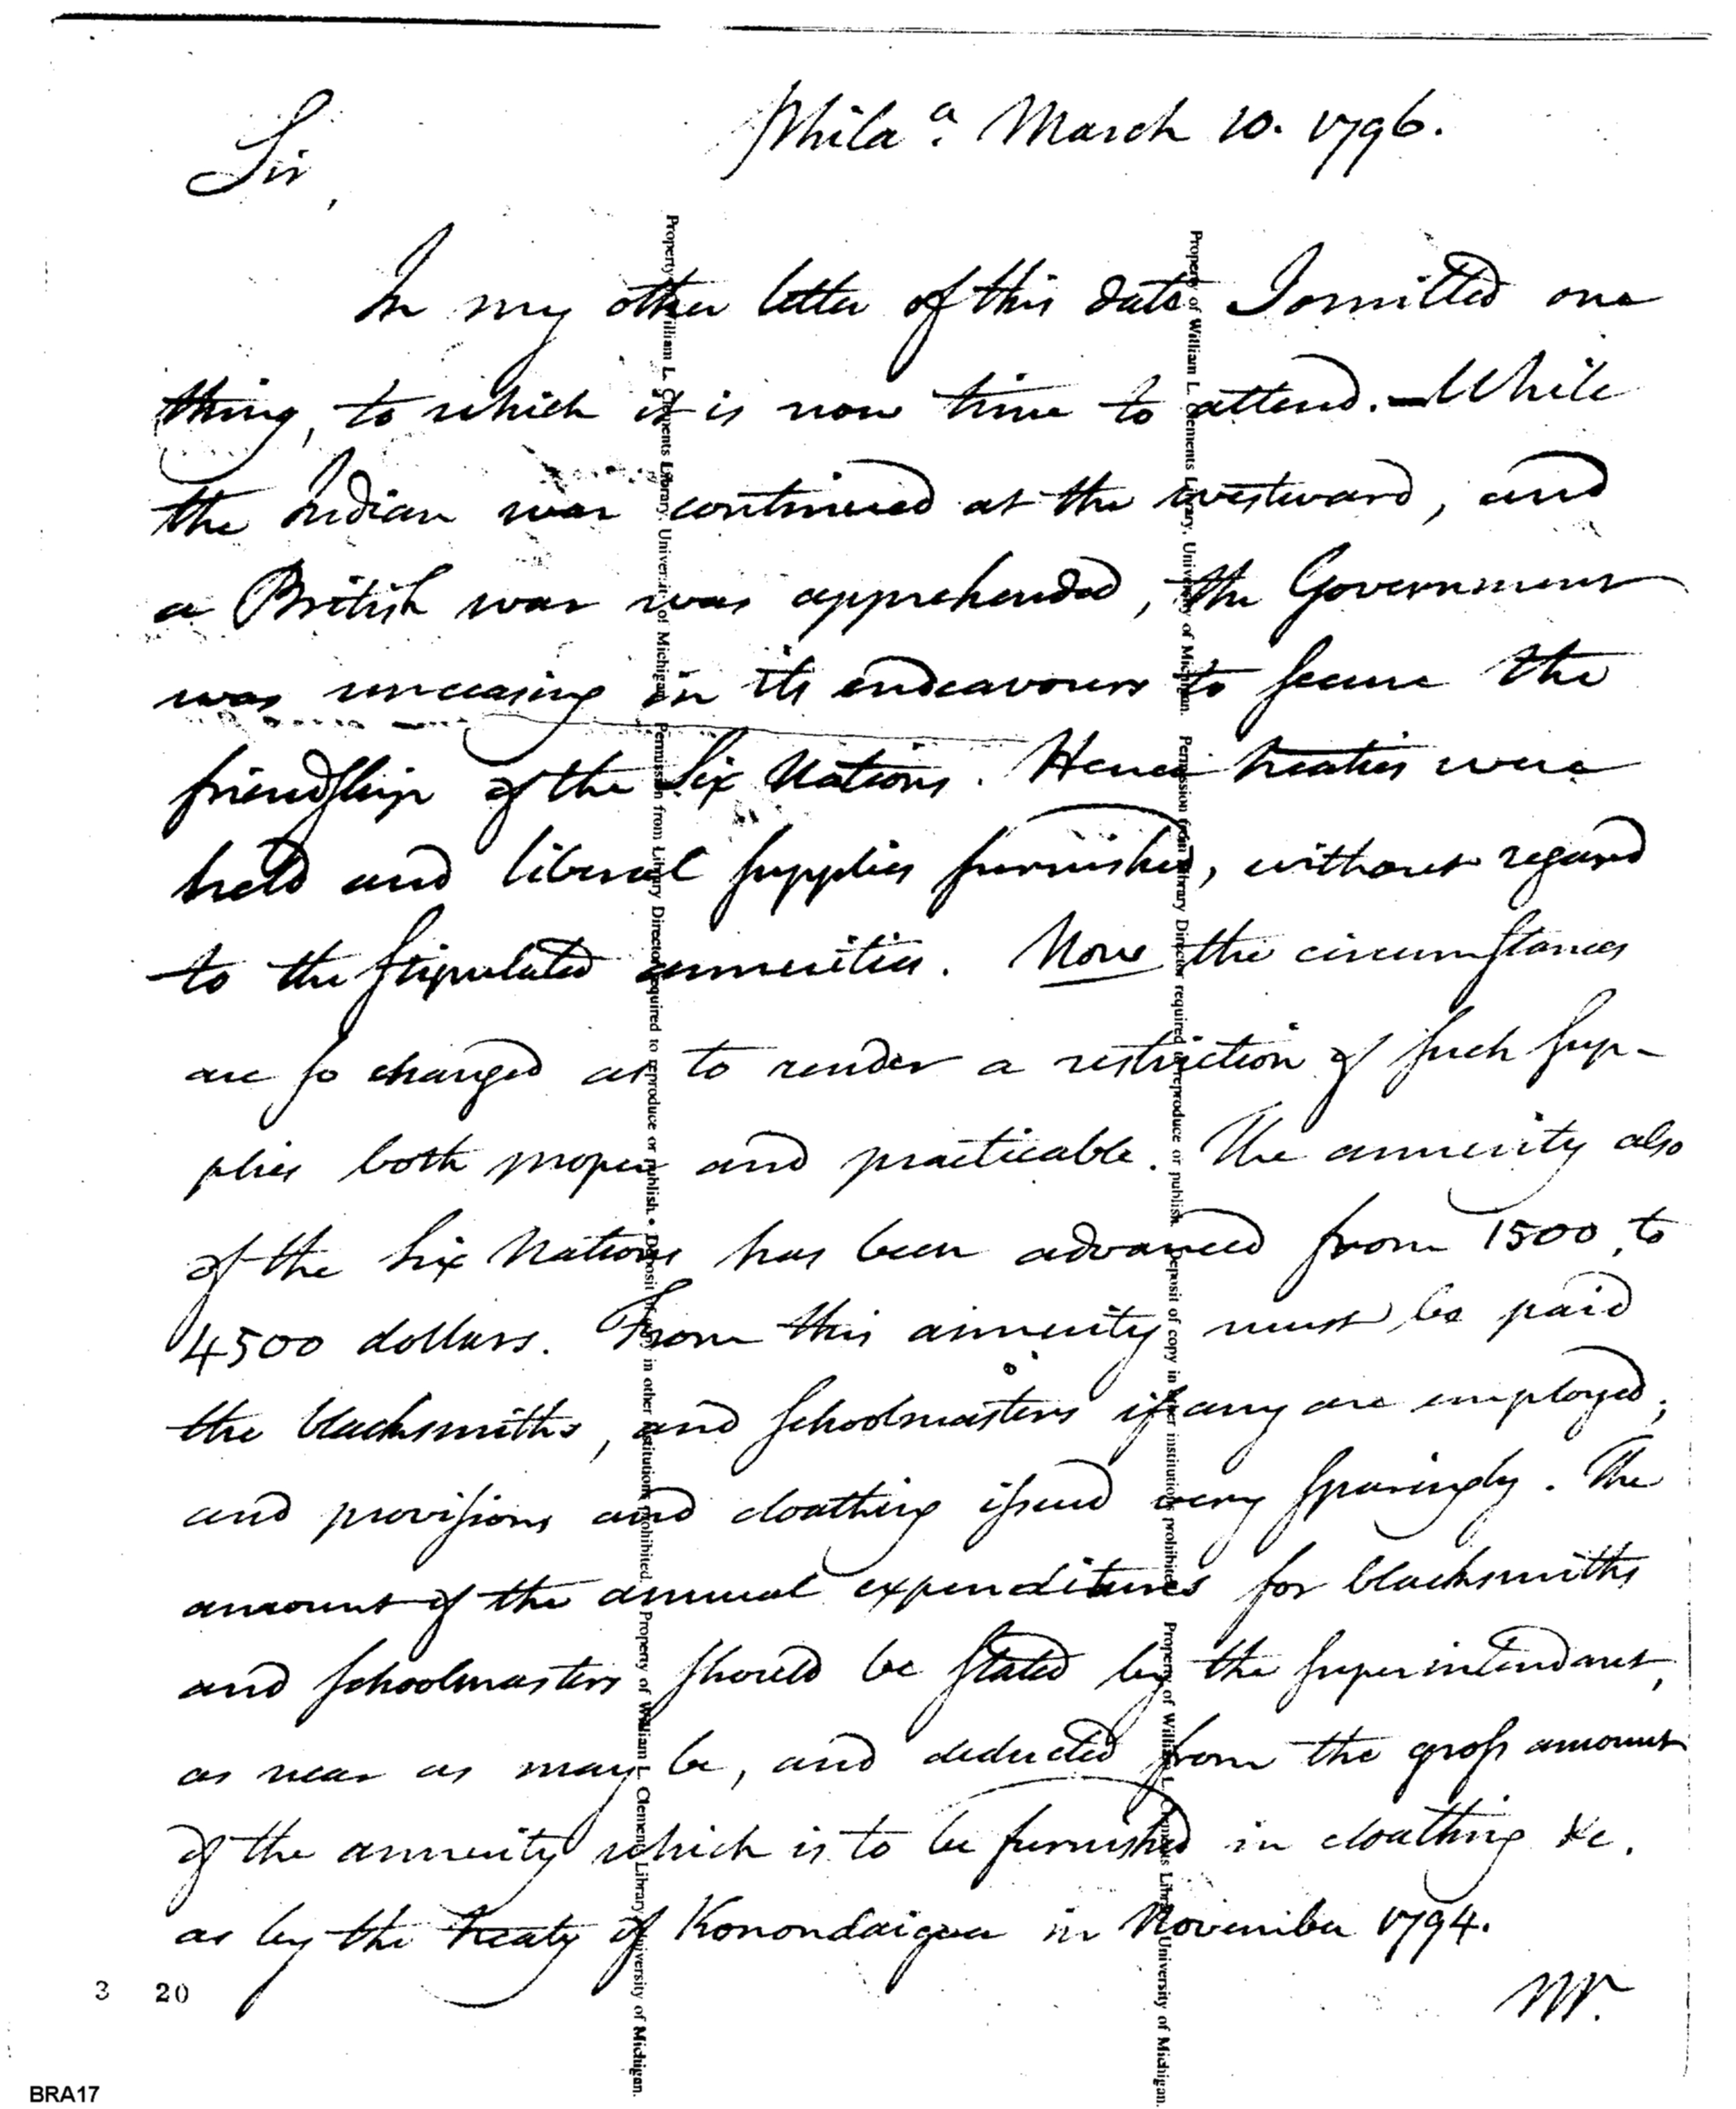 Philaᵃ. March 10. 1796.
Sir,
In my other letter of this date I omitted one
thing, to which it is now time to attend. — While
the Indian war continued at the westward, and
a British war was apprehended, the Government
was unceasing in its endeavours to secure the
friendship of the Six Nations. Hence treaties were
held and liberal supplies furnished, without regard
to the stipulated annuities. Now the circumstances
are so changed as to render a restriction of such sup-
plies both proper and practicable. The annuity also
of the Six Nations has been advanced from 1500, to
4500 dollars. From this annuity must be paid
the blacksmiths, and schoolmasters if any are employed;
and provisions and cloathing issued very sparingly. The
amount of the annual expenditures for blacksmiths
and schoolmasters should be stated by the superintendant,
as near as may be, and deducted from the gross amount
of the annuity which is to be furnished in cloathing &c.
as by the treaty of Konondaigua in November 1794.
Mr.
3 20
BRA17
Property of William L. Clements Library, University of Michigan. Permission from Library Director required to reproduce or publish. • Deposit of copy in other institutions prohibited. Property of William L. Clements Library University of Michigan.
Property of William L. Clements Library, University of Michigan. Permission from Library Director required to reproduce or publish. Deposit of copy in other institutions prohibited. Property of William L. Clements Library University of Michigan.